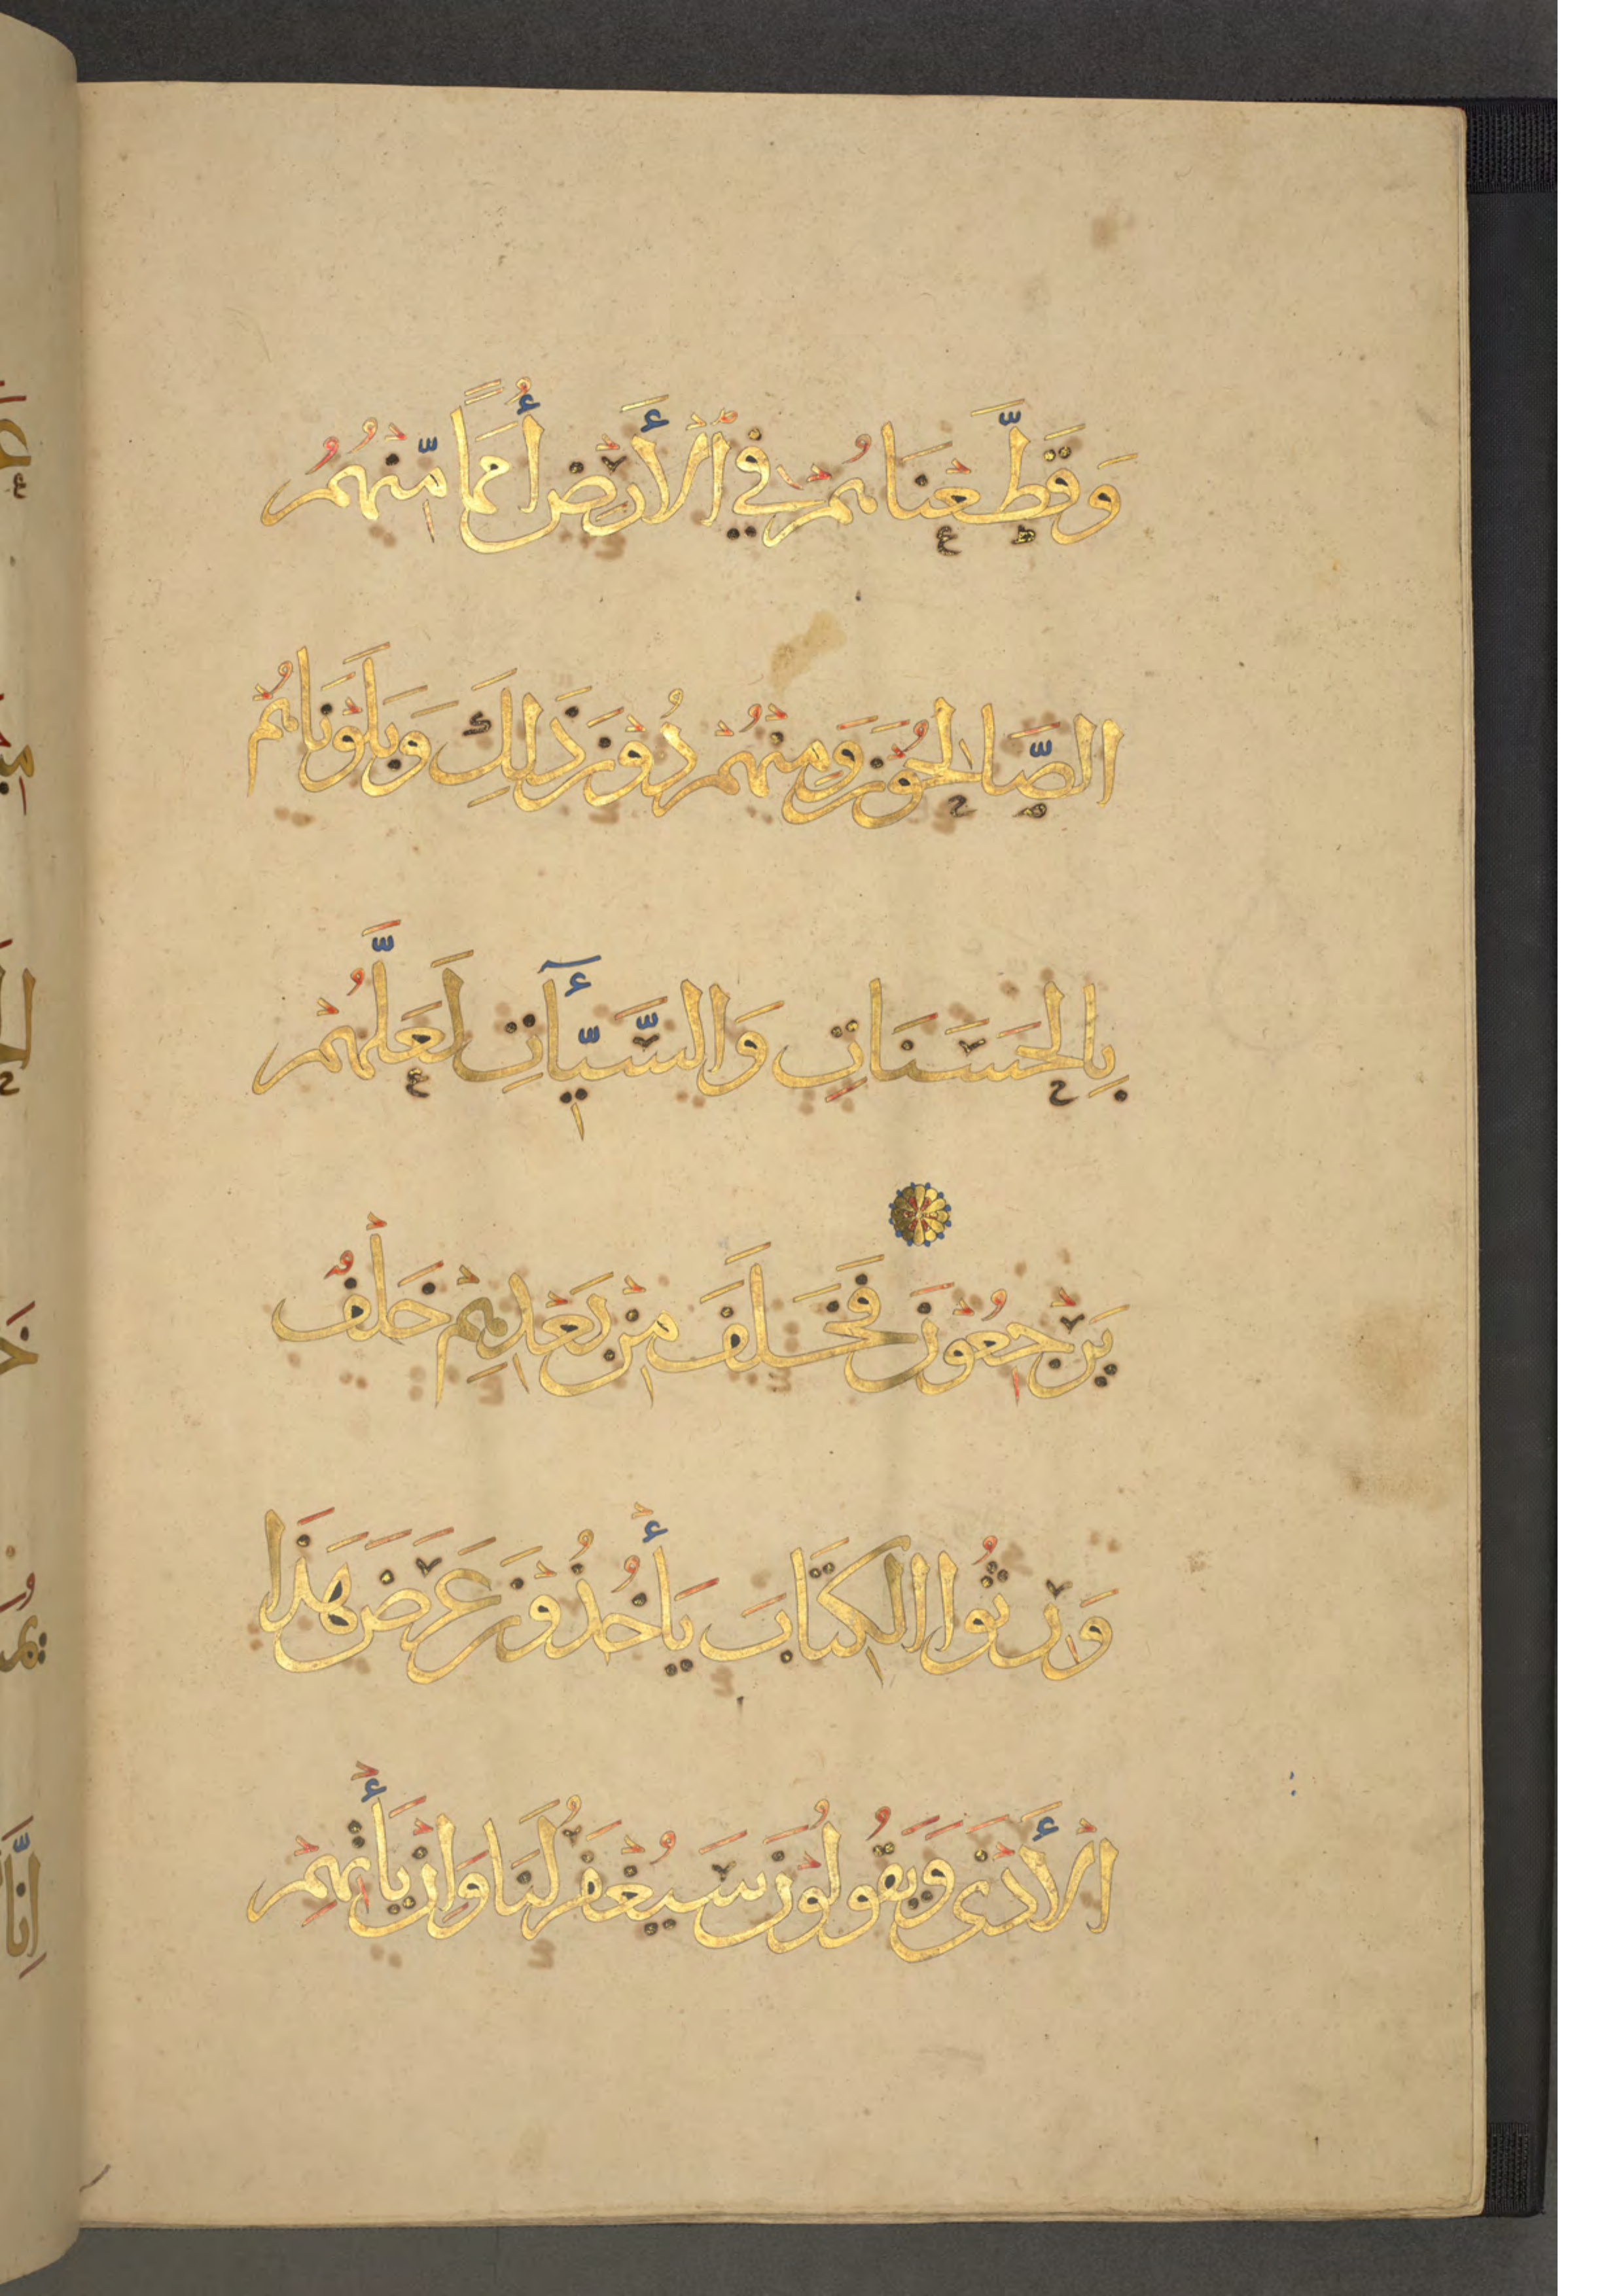 وَقَطَّعْنَاهُمْ فِي الْأَرْضِ أُمَمًا مِّنْهُمُ
الصَّالِحُونَ وَمِنْهُمْ دُونَ ذَلِكَ وَبَلَوْنَاهُمْ
بِالْحَسَنَاتِ وَالسَّيِّأٓتِ لَعَلَّهُمْ
يَرْجِعُونَ فَخَلَفَ مِنْ بَعْدِهِمْ خَلْفٌ
وَرِثُوا الْكِتَابَ يَأْخُذُونَ عَرَضَ هَذَا
الْأَدْنَى وَيَقُولُونَ سَيُغْفَرُ لَنَا وَإِنْ يَأْتِهِمْ